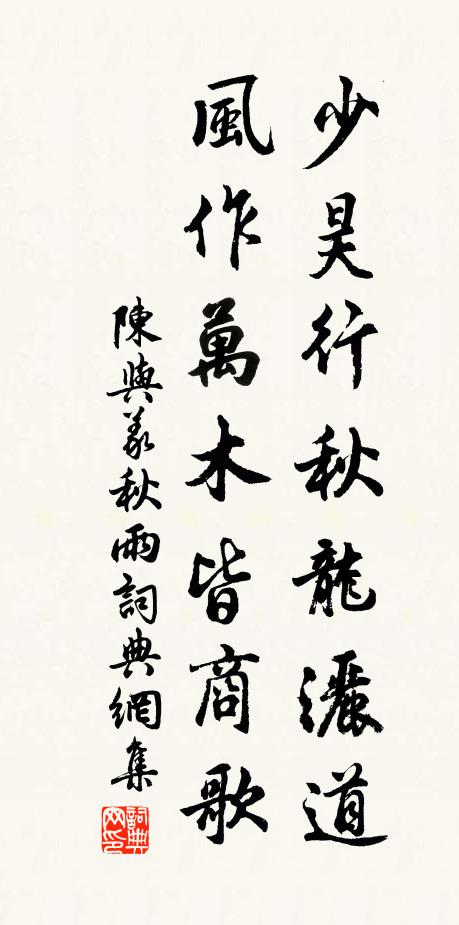 少昊行秋龍灑道
風作萬木皆商歌
陳與義秋雨詞典網集
詞典
网印